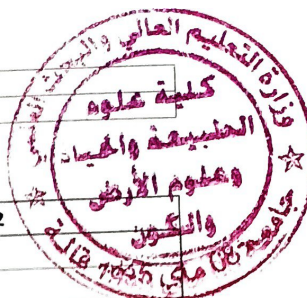 وزارة التعليم العالي والبحث العلمي
كلية علوم
الطبيعة والحياة
وعلوم الأرض
والكون
جامعة 08 ماي 1945 قالمة